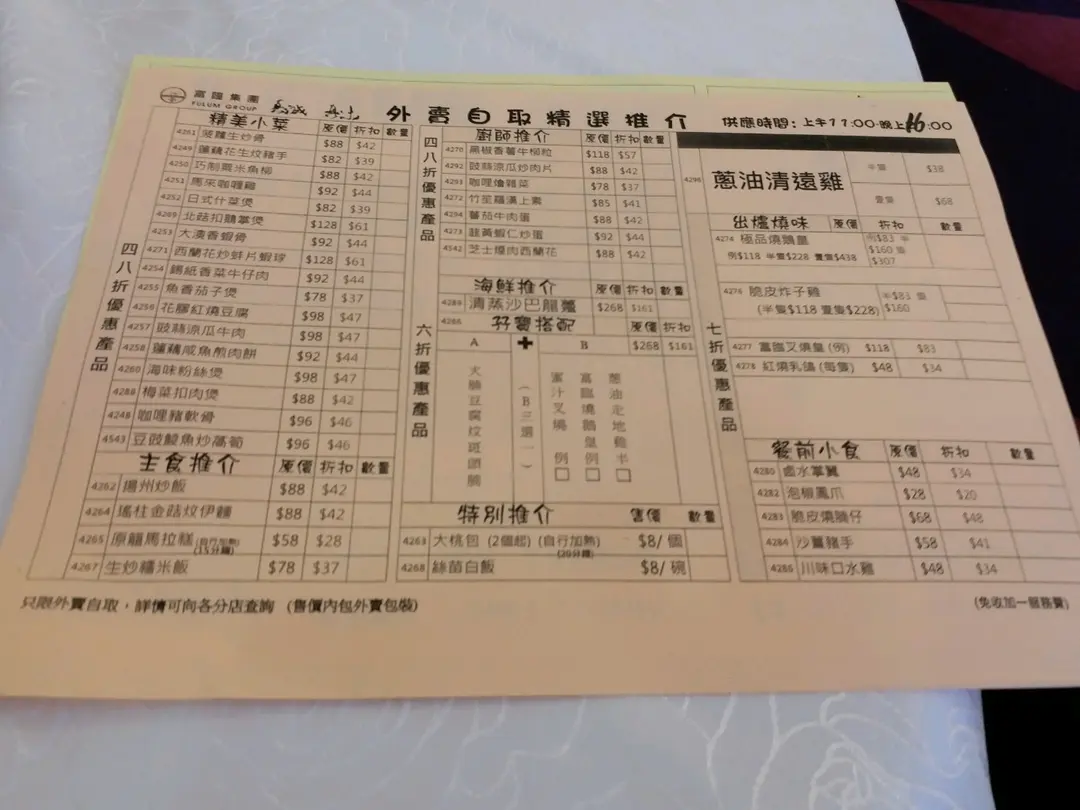 富臨集團
FULUM GROUP
外賣自取精選推介
供應時間：上午11:00-晚上16:00
四八折優惠產品
精美小菜 原價 折扣 數量
4261 菠蘿生炒骨 $88 $42
4249 蓮藕花生炆豬手 $82 $39
4250 巧制粟米魚柳 $88 $42
4251 馬來咖喱雞 $92 $44
4252 日式什菜煲 $82 $39
4289 北菇扣鵝掌煲 $128 $61
4253 大澳香蝦骨 $92 $44
4271 西蘭花炒蚌片蝦球 $128 $61
4254 錫紙香菜牛仔肉 $92 $44
4255 魚香茄子煲 $78 $37
4256 花膠紅燒豆腐 $98 $47
4257 豉蒜涼瓜牛肉 $98 $47
4258 蓮藕咸魚煎肉餅 $92 $44
4260 海味粉絲煲 $98 $47
4288 梅菜扣肉煲 $88 $42
4248 咖哩豬軟骨 $96 $46
4543 豆豉鯪魚炒萵筍 $96 $46
主食推介 原價 折扣 數量
4262 揚州炒飯 $88 $42
4264 瑤柱金菇炆伊麵 $88 $42
4265 原籠馬拉糕 (自行加熱) (15分鐘) $58 $28
4267 生炒糯米飯 $78 $37
四八折優惠產品
廚師推介 原價 折扣 數量
4270 黑椒香薯牛柳粒 $118 $57
4292 豉蒜涼瓜炒肉片 $88 $42
4293 咖哩燴雜菜 $78 $37
4272 竹笙羅漢上素 $85 $41
4294 蕃茄牛肉蛋 $88 $42
4273 韭黃蝦仁炒蛋 $92 $44
4542 芝士煙肉西蘭花 $88 $42
六折優惠產品
海鮮推介 原價 折扣 數量
4289 清蒸沙巴龍躉 $268 $161
4286 孖寶搭配 原價 折扣
A ✚ B $268 $161
火腩豆腐炆斑頭腩
(B三選一)
蜜汁叉燒 例 □
富臨燒鵝皇 例 □
蔥油走地雞 半 □
特別推介 售價 數量
4263 大桃包 (2個起) (自行加熱) (20分鐘) $8/ 個
4268 絲苗白飯 $8/ 碗
4298 蔥油清遠雞
半隻 $38
壹隻 $68
七折優惠產品
出爐燒味 原價 折扣 數量
4274 極品燒鵝皇 例$83 半
例$118 半隻$228 壹隻$438 $160 壹 $307
4276 脆皮炸子雞 半$83 壹
(半隻$118 壹隻$228) $160
4277 富臨叉燒皇 (例) $118 $83
4278 紅燒乳鴿 (每隻) $48 $34
餐前小食 原價 折扣 數量
4280 鹵水掌翼 $48 $34
4282 泡椒鳳爪 $28 $20
4283 脆皮燒腩仔 $68 $48
4284 沙薑豬手 $58 $41
4285 川味口水雞 $48 $34
只限外賣自取，詳情可向各分店查詢 (售價內包外賣包裝)
(免收加一服務費)